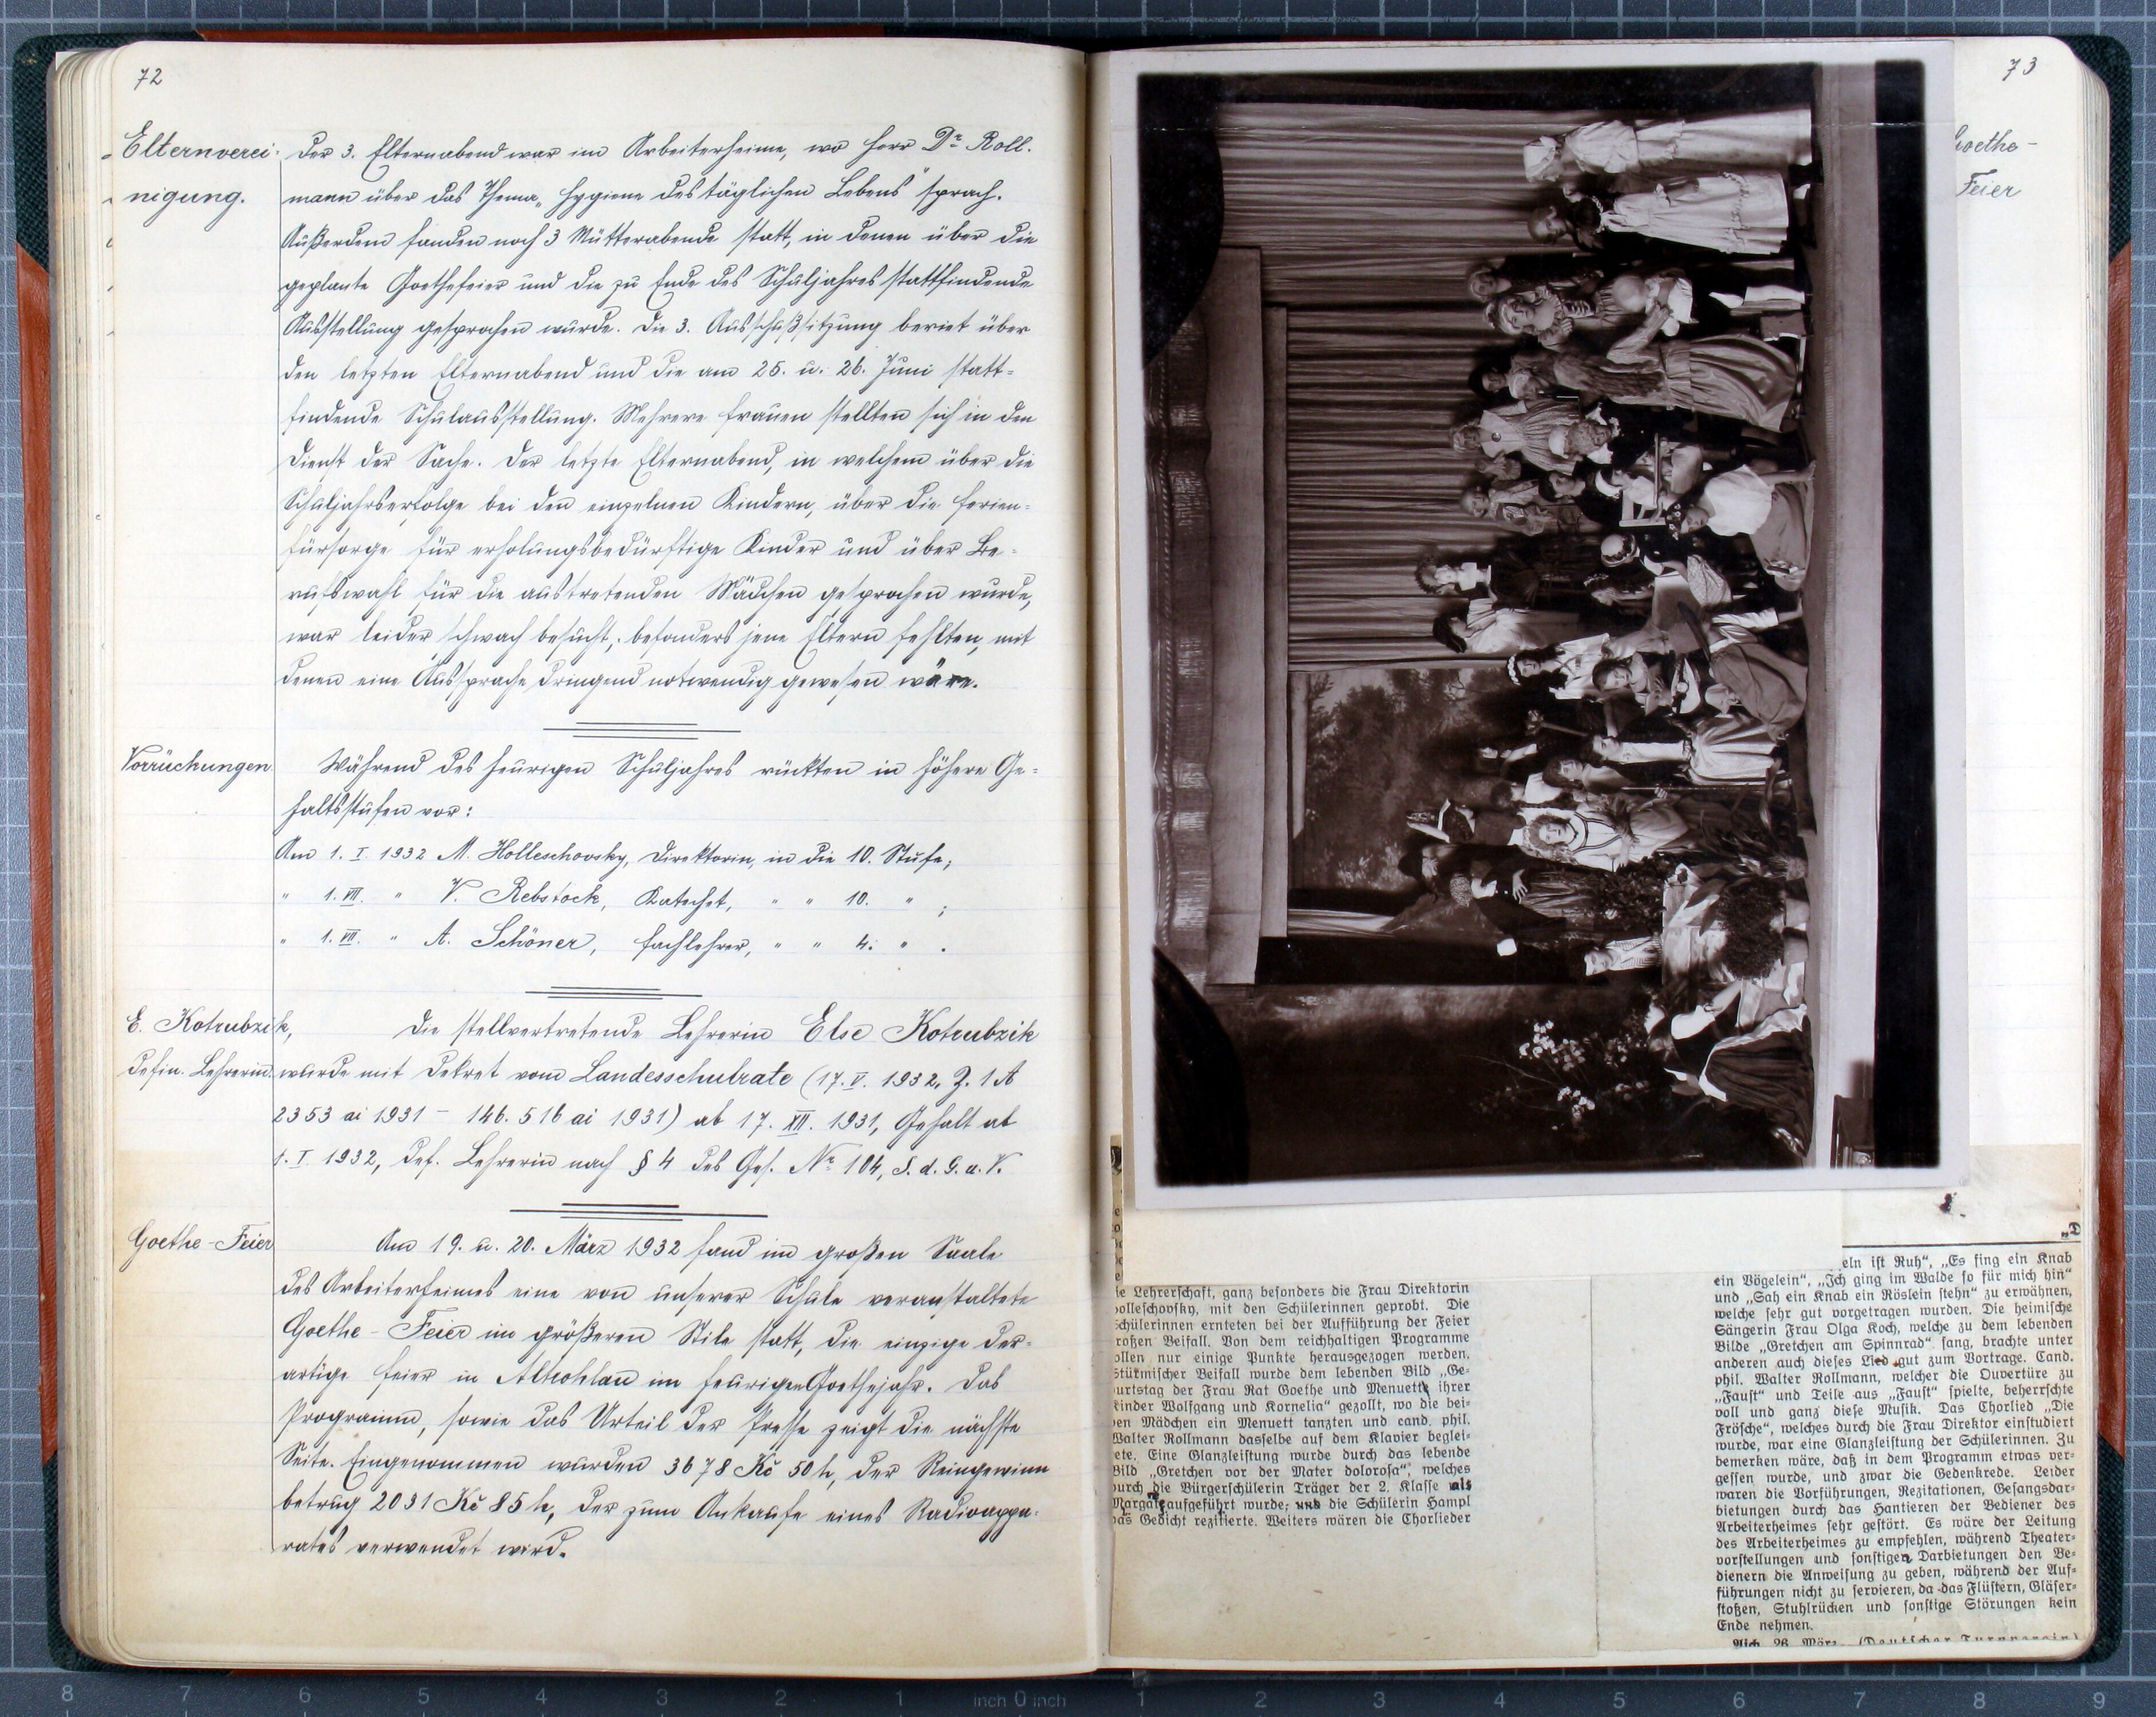 72
Elternverei-
nigung.
Der 3. Elternabend war im Arbeiterheime, wo Herr Dr Roll-
mann über das Thema „Hygiene des täglichen Lebens" sprach.
Außerdem fanden noch 3 Mütterabende statt, in denen über die
geplante Goethefeier und die zu Ende des Schuljahres stattfindende
Ausstellung gesprochen wurde. Die 3. Ausschußsitzung beriet über
den letzten Elternabend und die am 25. u. 26. Juni statt-
findende Schulausstellung. Mehrere Frauen stellten sich in den
Dienst der Sache. Der letzte Elternabend, in welchem über die
Schuljahrserfolge bei den einzelnen Kindern, über die Ferien-
fürsorge für erholungsbedürftige Kinder und über Be-
rufswahl für die austretenden Mädchen gesprochen wurde,
war leider schwach besucht; besonders jene Eltern fehlten, mit
denen eine Aussprache dringend notwendig gewesen wäre.
Vorrückungen
Während des heurigen Schuljahres rückten in höhere Ge-
haltsstufen vor:
Am 1. I. 1932 M. Holleschovsky, Direktorin, in die 10. Stufe;
" 1. VII. " V. Rebstock, Katechet, " " 10. " ;
" 1. VII. " A. Schöner, Fachlehrer, " " 4. " .
E. Kotrubzik,
defin. Lehrerin.
Die stellvertretende Lehrerin Else Kotrubzik
wurde mit Dekret vom Landesschulrate (17. V. 1932, Z. I A
2353 ai 1931 – 146.516 ai 1931) ab 17. XII. 1931, Gehalt ab
1. I. 1932, def. Lehrerin nach § 4 des Ges. Nr 104, S. d. G. u. V.
Goethe-Feier
Am 19. u. 20. März 1932 fand im großen Saale
des Arbeiterheimes eine von unserer Schule veranstaltete
Goethe-Feier im größeren Stile statt, die einzige der-
artige Feier in Altrohlau im heurigen Goethejahr. Das
Programm, sowie das Urteil der Presse zeigt die nächste
Seite. Eingenommen wurden 3678 Kč 50 h, der Reingewinn
betrug 2031 Kč 85 h, der zum Ankaufe eines Radioappa-
rates verwendet wird.
73
Goethe-
Feier
ie Lehrerschaft, ganz besonders die Frau Direktorin
olleschovsky, mit den Schülerinnen geprobt. Die
chülerinnen ernteten bei der Aufführung der Feier
roßen Beifall. Von dem reichhaltigen Programme
ollen nur einige Punkte herausgezogen werden.
Stürmischer Beifall wurde dem lebenden Bild „Ge-
urtstag der Frau Rat Goethe und Menuette ihrer
Kinder Wolfgang und Kornelia" gezollt, wo die bei-
en Mädchen ein Menuett tanzten und cand. phil.
Walter Rollmann dasselbe auf dem Klavier beglei-
ete. Eine Glanzleistung wurde durch das lebende
Bild „Gretchen vor der Mater dolorosa", welches
urch die Bürgerschülerin Träger der 2. Klasse als
Margarete aufgeführt wurde; und die Schülerin Hampl
as Gedicht rezitierte. Weiters wären die Chorlieder
„D
eln ist Ruh", „Es sing ein Knab
ein Vögelein", „Ich ging im Walde so für mich hin"
und „Sah ein Knab ein Röslein stehn" zu erwähnen,
welche sehr gut vorgetragen wurden. Die heimische
Sängerin Frau Olga Koch, welche zu dem lebenden
Bilde „Gretchen am Spinnrad" sang, brachte unter
anderen auch dieses Lied gut zum Vortrage. Cand.
phil. Walter Rollmann, welcher die Ouvertüre zu
„Faust" und Teile aus „Faust" spielte, beherrschte
voll und ganz diese Musik. Das Chorlied „Die
Frösche", welches durch die Frau Direktor einstudiert
wurde, war eine Glanzleistung der Schülerinnen. Zu
bemerken wäre, daß in dem Programm etwas ver-
gessen wurde, und zwar die Gedenkrede. Leider
waren die Vorführungen, Rezitationen, Gesangsdar-
bietungen durch das Hantieren der Bediener des
Arbeiterheimes sehr gestört. Es wäre der Leitung
des Arbeiterheimes zu empfehlen, während Theater-
vorstellungen und sonstigen Darbietungen den Be-
dienern die Anweisung zu geben, während der Auf-
führungen nicht zu servieren, da das Flüstern, Gläser-
stoßen, Stuhlrücken und sonstige Störungen kein
Ende nehmen.
Aich, 26. März. (Deutscher Turnverein)
8 7 6 5 4 3 2 1 inch 0 inch 1 2 3 4 5 6 7 8 9